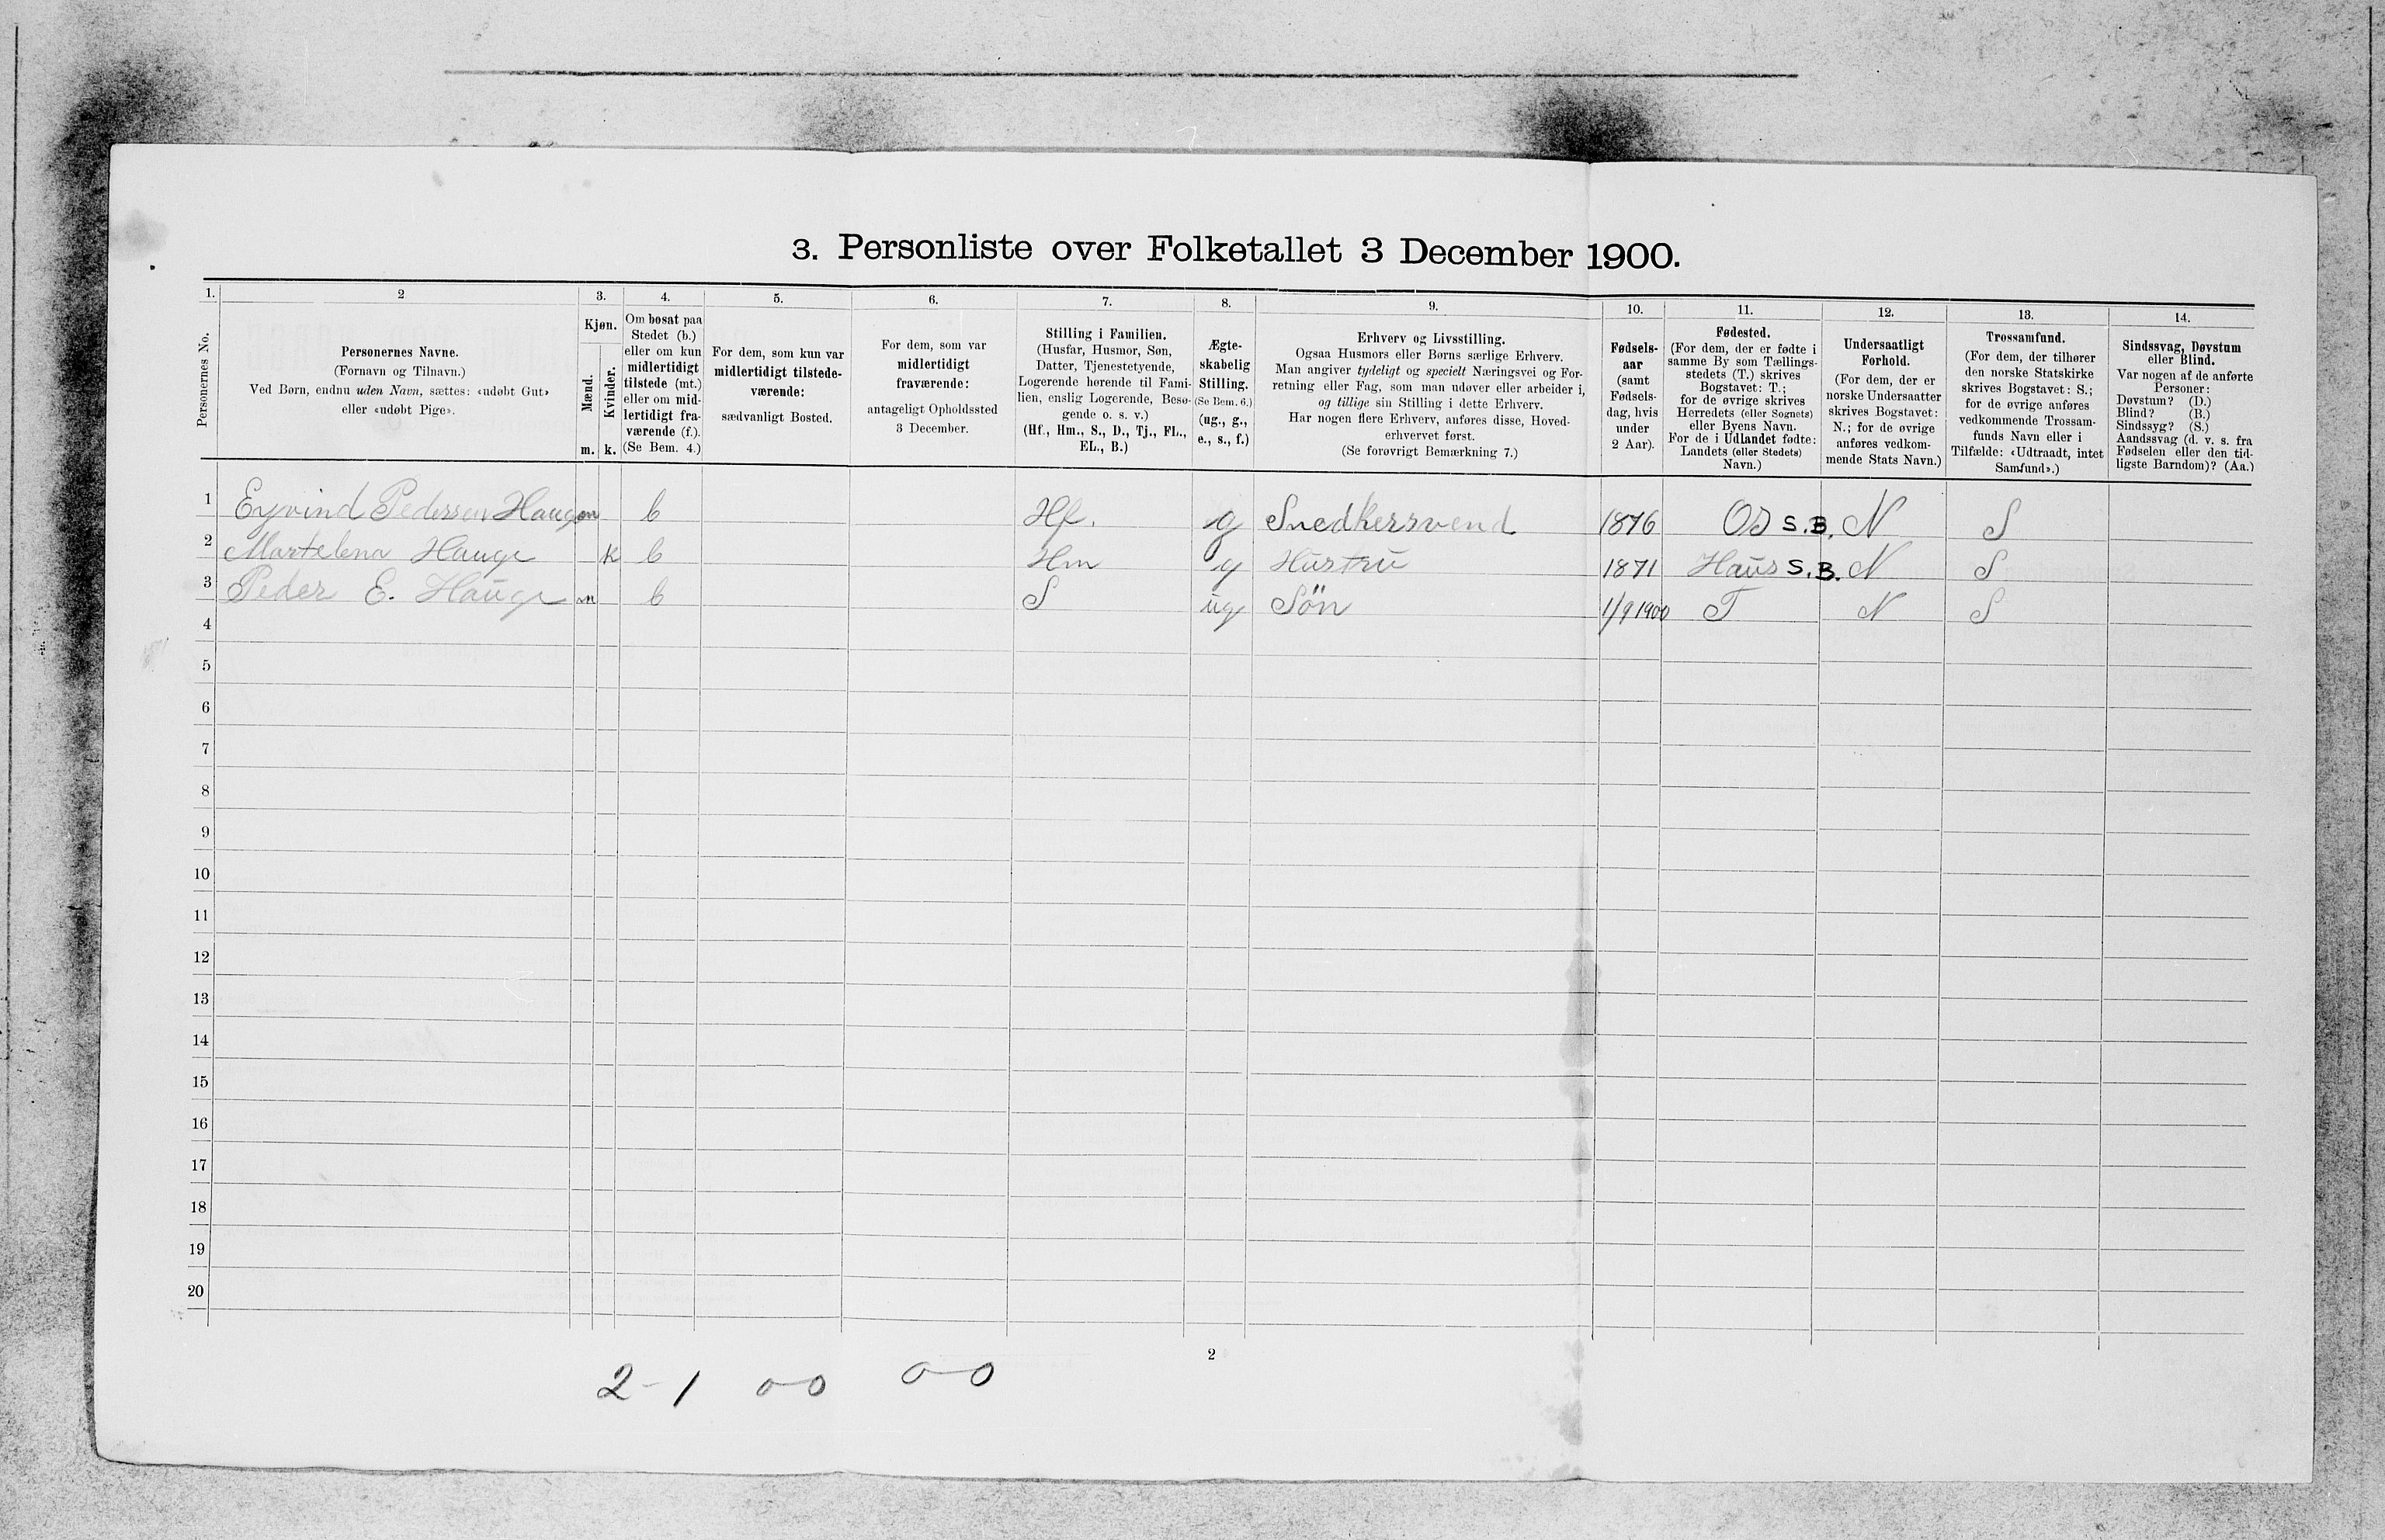 3. Personliste over Folketallet 3 December 1900.
1. 2 3. 4. 5. 6. 7. 8. 9. 10. 11. 12. 13. 14.
Personernes No.
Personernes Navne.
(Fornavn og Tilnavn.)
Ved Børn, endnu uden Navn, sættes: «udøbt Gut»
eller «udøbt Pige».
Kjøn.
Mænd.
Kvinder.
m. k.
Om bosat paa
Stedet (b.)
eller om kun
midlertidigt
tilstede (mt.)
eller om mid-
lertidigt fra-
værende (f.).
(Se Bem. 4.)
For dem, som kun var
midlertidigt tilstede-
værende:
sædvanligt Bosted.
For dem, som var
midlertidigt
fraværende:
antageligt Opholdssted
3 December.
Stilling i Familien.
(Husfar, Husmor, Søn,
Datter, Tjenestetyende,
Logerende hørende til Fami-
lien, enslig Logerende, Besø-
gende o. s. v.)
(Hf., Hm., S., D., Tj., FL.,
EL., B.)
Ægte-
skabelig
Stilling.
(Se Bem. 6.)
(ug., g.,
e., s., f.)
Erhverv og Livsstilling.
Ogsaa Husmors eller Børns særlige Erhverv.
Man angiver tydeligt og specielt Næringsvei og For-
retning eller Fag, som man udøver eller arbeider i,
og tillige sin Stilling i dette Erhverv.
Har nogen flere Erhverv, anføres disse, Hoved-
erhvervet først.
(Se forøvrigt Bemærkning 7.)
Fødsels-
aar
(samt
Fødsels-
dag, hvis
under
2 Aar).
Fødested.
(For dem, der er fødte i
samme By som Tællings-
stedets (T.) skrives
Bogstavet: T.;
for de øvrige skrives
Herredets (eller Sognets)
eller Byens Navn.
For de i Udlandet fødte:
Landets (eller Stedets)
Navn.)
Undersaatligt
Forhold.
(For dem, der er
norske Undersaatter
skrives Bogstavet:
N.; for de øvrige
anføres vedkom-
mende Stats Navn.)
Trossamfund.
(For dem, der tilhører
den norske Statskirke
skrives Bogstavet: S.;
for de øvrige anføres
vedkommende Trossam-
funds Navn eller i
Tilfælde: «Udtraadt, intet
Samfund».)
Sindssvag, Døvstum
eller Blind.
Var nogen af de anførte
Personer:
Døvstum? (D.)
Blind? (B.)
Sindssyg? (S.)
Aandssvag (d. v. s. fra
Fødselen eller den tid-
ligste Barndom)? (Aa.)
1 Eyvind Pedersen Hauge m b Hf. g Snedkersvend 1876 Os S.B. N S
2 Martelena Hauge k b Hm g Hustru 1871 Haus S.B. N S
3 Peder E. Hauge m b S ug Søn 1/9 1900 T N S
4
5
6
7
8
9
10
11
12
13
14
15
16
17
18
19
20
2
2-1 0-0 0-0